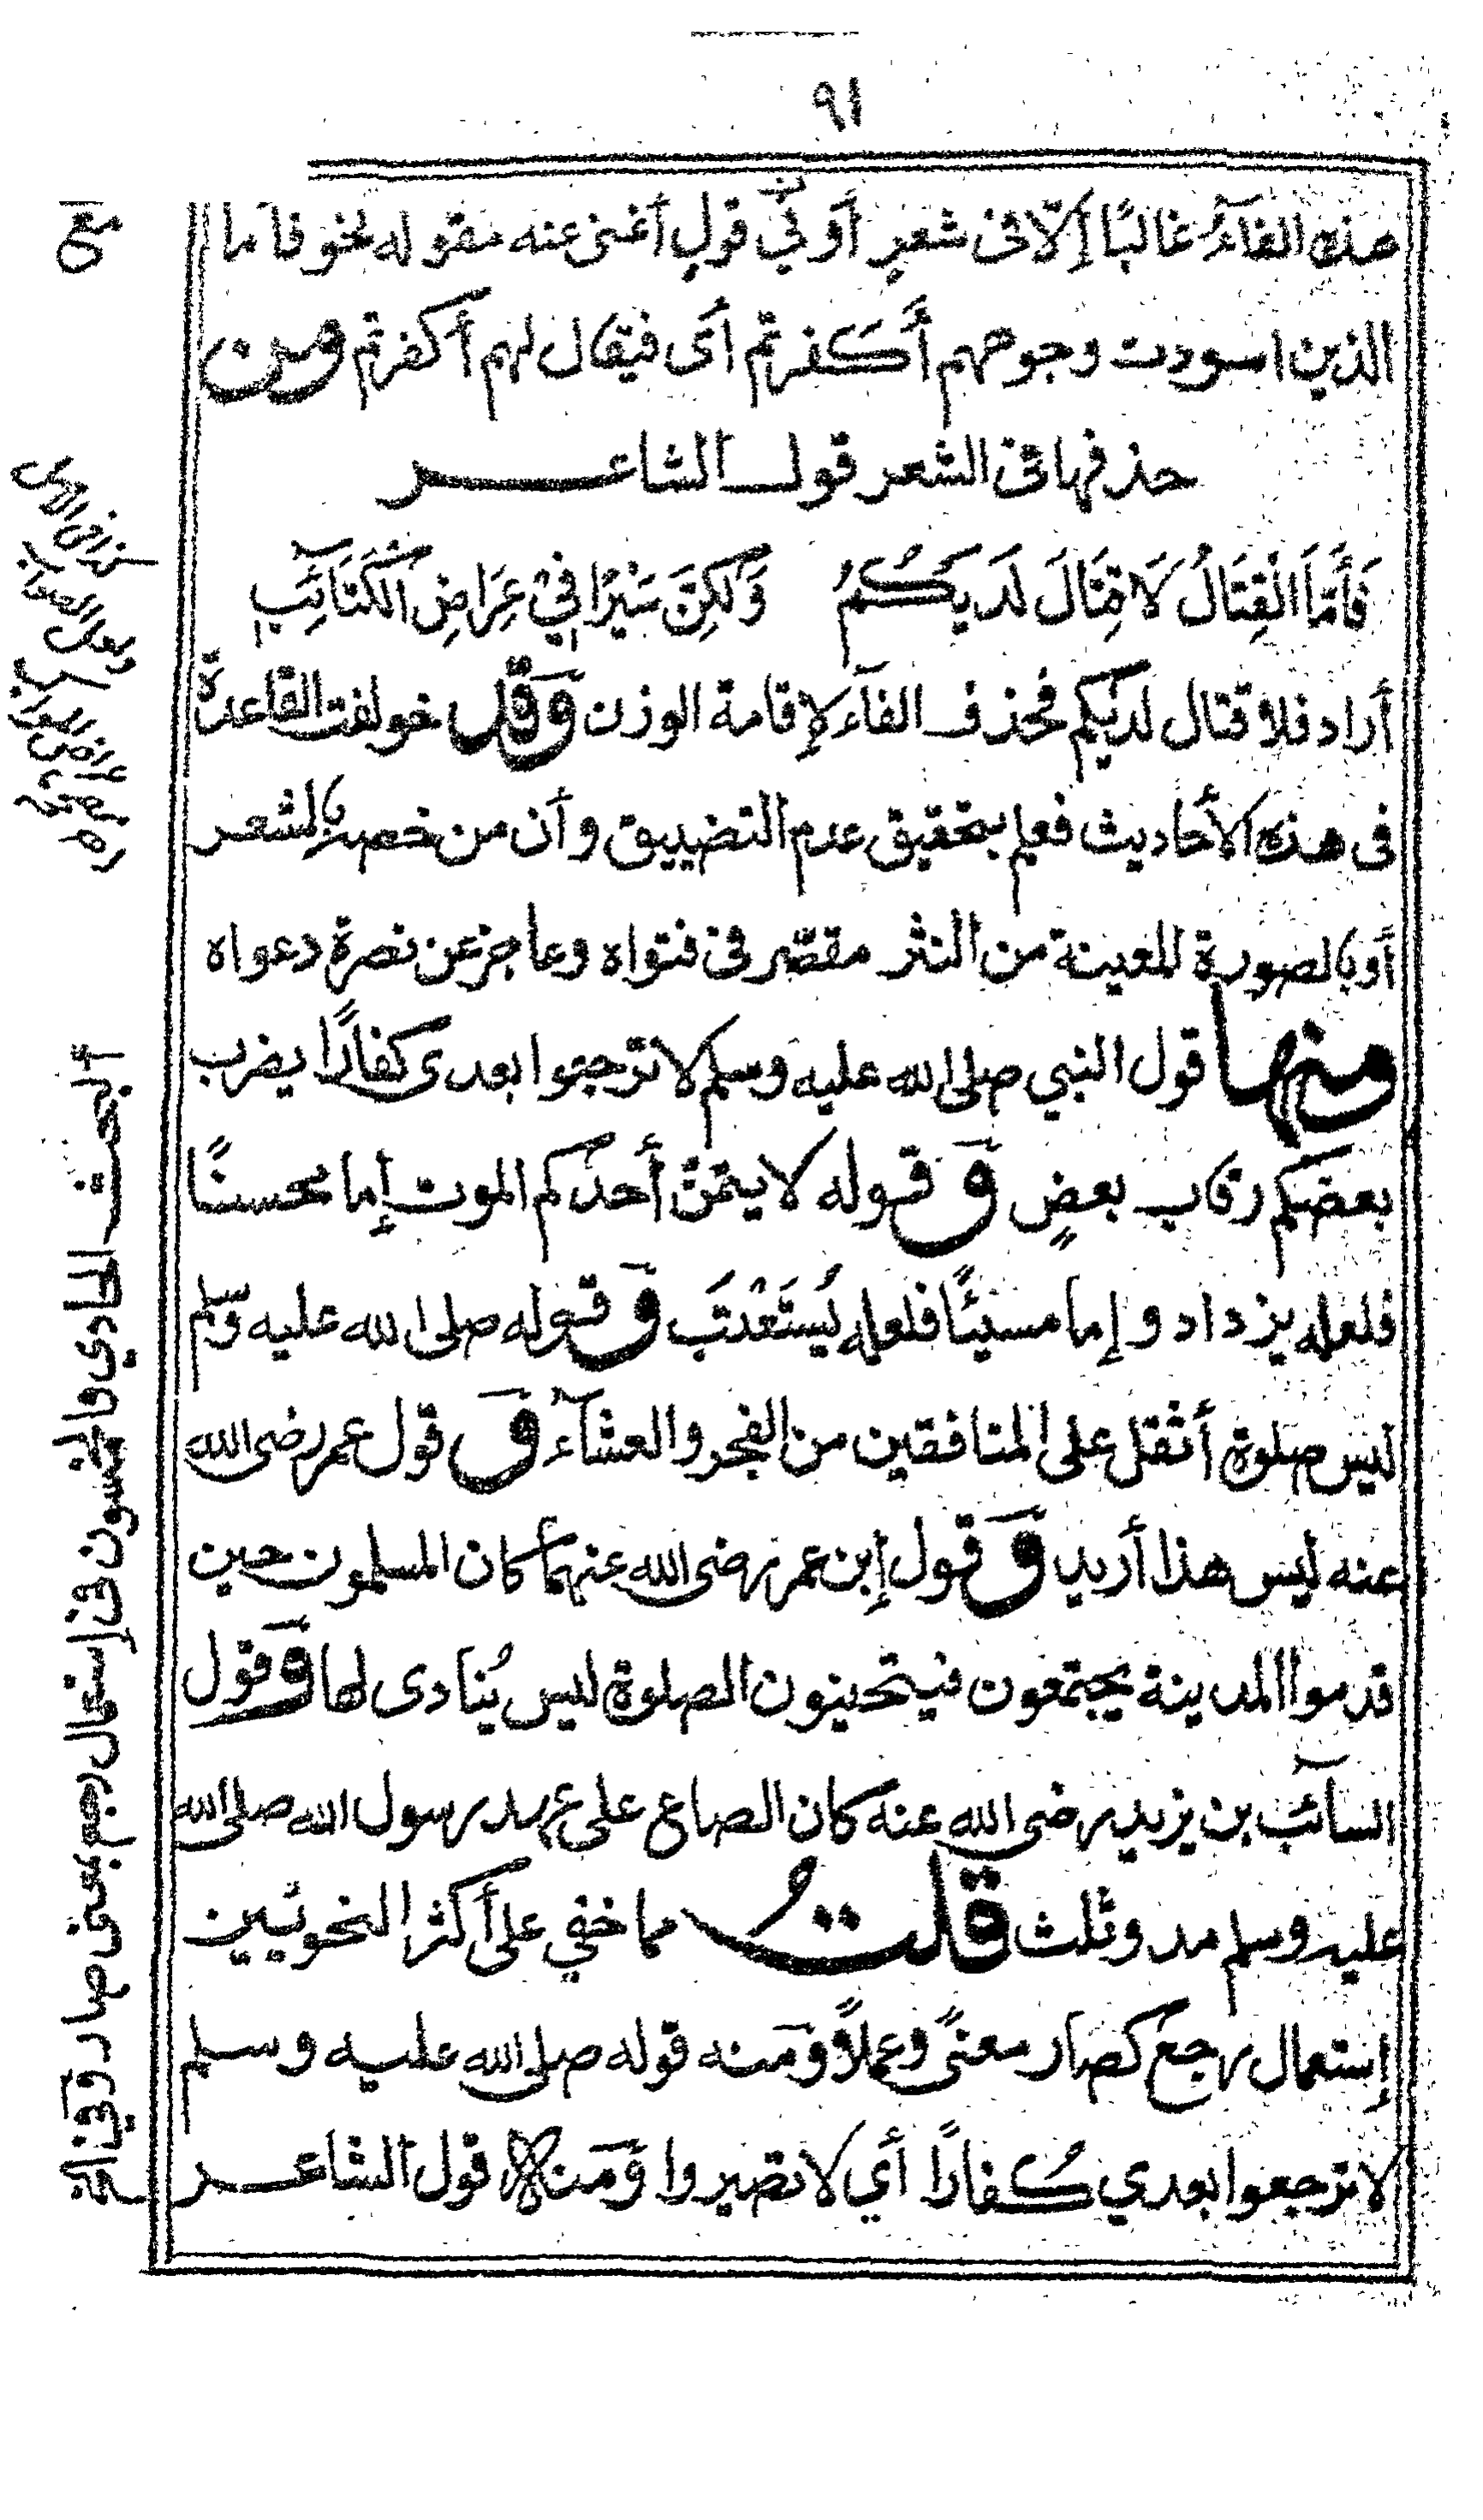 ٩١
هذه الفآءُ غالبًا إلّا فى شعرٍ أو في قولٍ أغنى عنه مقوله نحو فأما
الذين اسودت وجوههم أَكَفرتم أى فيقال لهم أكفرتم ومن
حذفها فى الشعر قول الشاعر
فَأَمَّا الْقِتَالُ لَا قِتَالَ لَدَيكُمُ وَلكِنَّ سَيْرًا فِيْ عِرَاضِ الْكَتَآئِبِ
أراد فلا قتال لديكم فحذف الفآء لإقامة الوزن وقد خولفت القاعدة
فى هذه الأحاديث فعلم بتحقيق عدم التضييق وأن من خصه بالشعر
أو بالصورة المعينة من النثر مقصّر فى فتواه وعاجز عن نصرة دعواه
ومنها قول النبي صلى الله عليه وسلم لا ترجعوا بعدى كفارًا يضرب
بعضكم رقاب بعضٍ وقوله لا يتمنّ أحدكم الموت إما محسنًا
فلعله يزداد وإما مسيئًا فلعله يُستَعْتَب وقوله صلى الله عليه وسلم
ليس صلوة أثقل على المنافقين من الفجر والعشآء وقول عمر رضى الله
عنه ليس هذا أريد وقول إبن عمر رضى الله عنهما كان المسلمون حين
قدموا المدينة يجتمعون فيتحينون الصلوة ليس يُنادى لها وقول
السآئب بن يزيد رضى الله عنه كان الصاع على عهد رسول الله صلى الله
عليه وسلم مد وثلث قلت مما خفي على أكثر النحويين
إستعمال رجع كصار معنًى وعملًا ومنه قوله صلى الله عليه وسلم
لا ترجعوا بعدي كُفارًا أي لا تصيروا ومنه قول الشاعر
البحث الحادي والخمسون فى إستعمال رجع بمعنى صار وفى